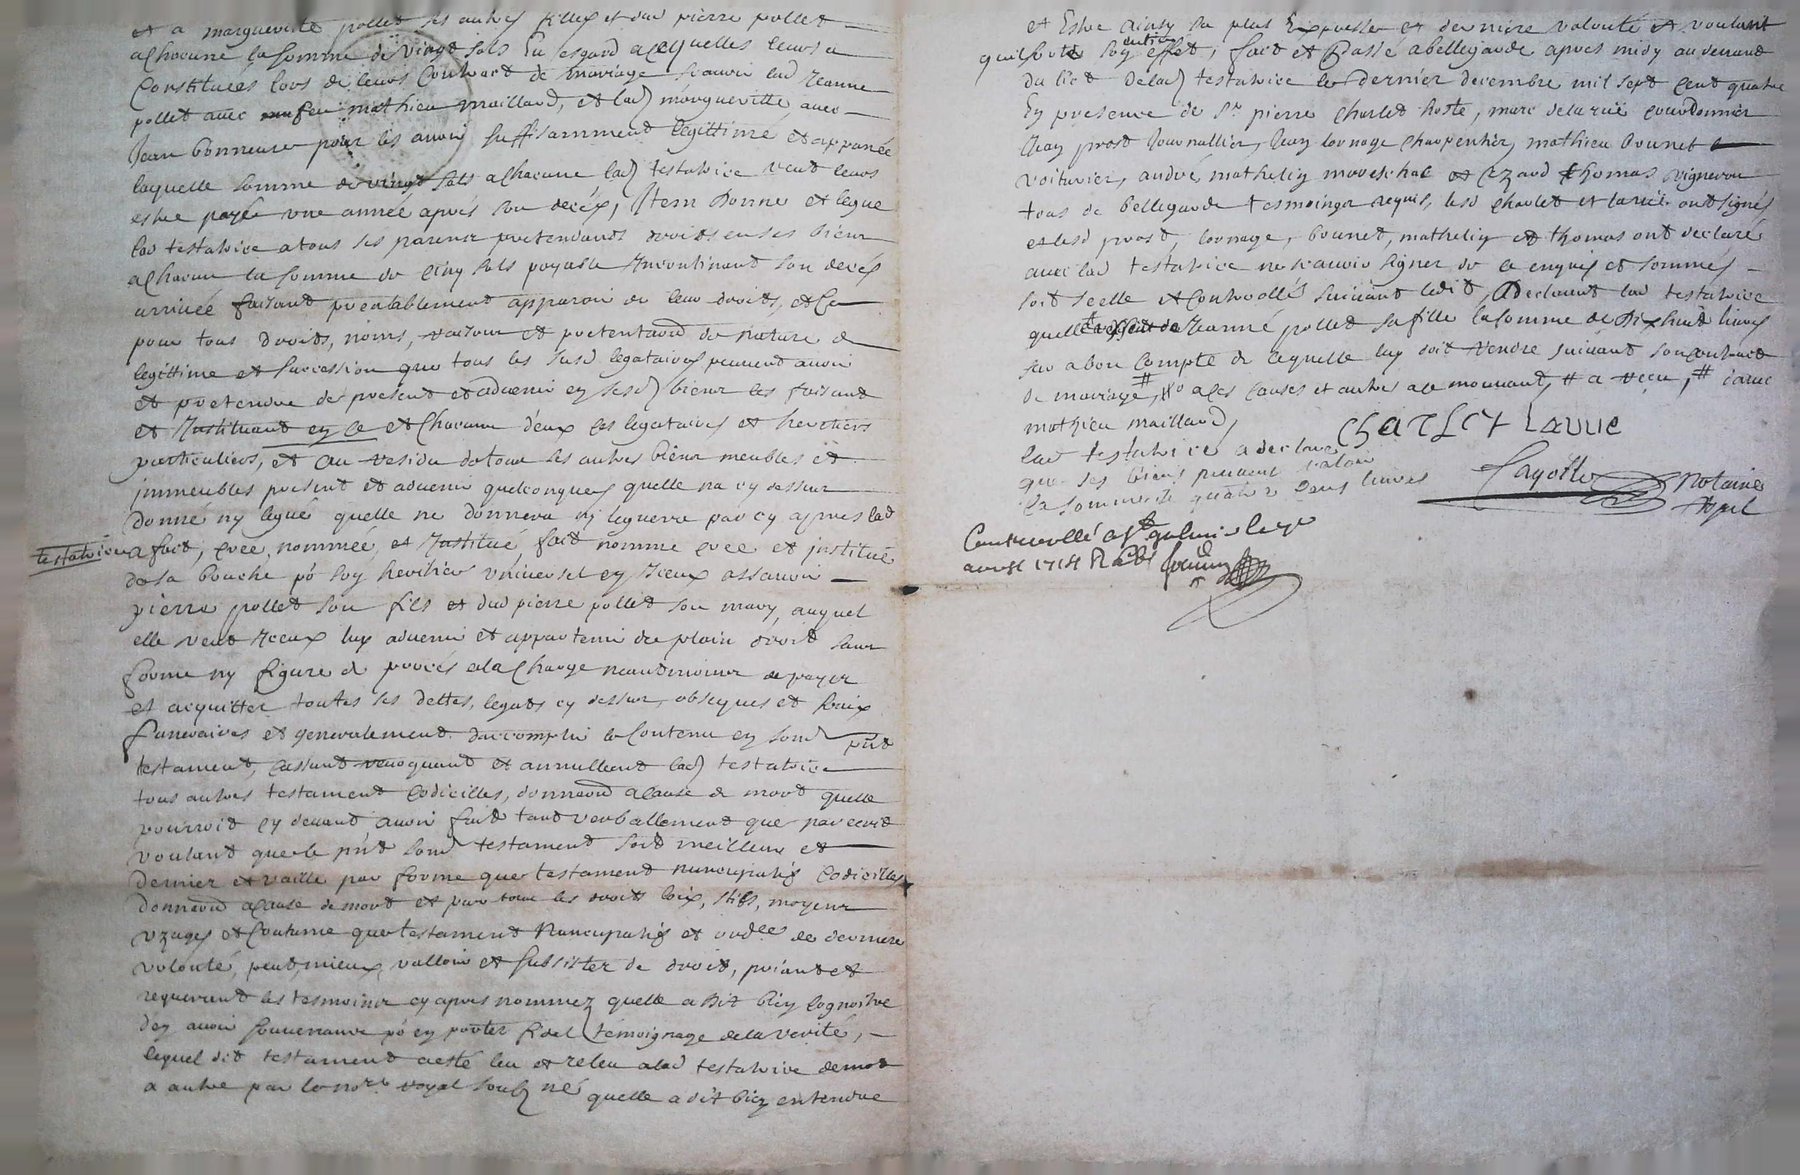 et a marguerite pollet ses autres filles et dud pierre pollet
a chacune la somme de vingt sols En esgard a celles leurs a
Constituées lors de leurs Contract de mariage scauoir lad Jeanne
pollet auec feu mathieu maillard, et lad marguerite auec
Jean bonneure pour les auoir suffisamment legittimé et appanée
laquelle somme de vingt sols a chacune lad testatrice veut leurs
estre payée une année aprés son decéz, Item Donne et legue
lad testatrice a tous ses parens pretendants droits en ses biens
a chacun la somme de cinq sols payable Incontinant son decéz
arriuée faisant preallablement apparoir de leur droits, et ce
pour tous droits, noms, raisons et pretentions de nature de
legittime et succession que tous les susd legataires peuuent auoir
et pretendre de present et aduenir en sesd biens les faisant
et Instituant en ce et chacun d'eux ses legataires et heritiers
particuliers, et Au residu de tous ses autres biens meubles et
immeubles present et aduenir quelconques quelle na cy dessus
donné ny legué quelle ne donnera ny leguera par cy apres lad
testatrice a fait, creé, nommée, et Institué, fait nomme creé et institué
de sa bouche po son heritier uniuersel en Iceux assauoir
pierre pollet son fils et dud pierre pollet son mary, auquel
elle veut Iceux luy aduenir et appartenir de plain droit sans
forme ny figure de procés a la charge neantmoins de payer
et acquitter toutes ses dettes, legats cy dessus, obseques et fraix
funeraires et generalement d'accomplir le Contenu en sond pnt
testament, cassant reuoquant et annullant lad testatrice
tous autres testament Codicilles, donnaon a cause de mort quelle
pourroit cy deuant auoir fait tant verballement que par ecrit
voulant que le pnt sond testament soit meilleur et
dernier et vaille par forme que testament nuncupatif Codicilles
donnaon a cause de mort et par tous les droits loix, stils, moyens
uzages et Coutume que testament Nuncupatif et ordce de derniere
volonté, peut mieux valloir et subsister de droit, priant et
requerant les tesmoins cy apres nommez quelle a dit bien cognoitre
d'en auoir souuenance po en porter fidel temoignage de la verité,
lequel dit testament a esté leu et releu a lad testatrice de mot
a autre par le nore royal soubz né quelle a dit bien entendre
et Estre Ainsy sa plus Expresse et derniere volonté et voulant
quil sorte son entier effet, fait et Passé a bellegarde apres midy au deuant
du lict de lad testatrice le dernier decembre mil sept cent quatre
En presence de Sr pierre Charlet hoste, marc delarüe courdonnier
Jean prost Journallier, Jean lornage charpentier, mathieu bounet
voiturier, andré mathelin mareschal et Cezard thomas vigneron
tous de bellegarde tesmoings requis, lesd charlet et larüe ont signés
et lesd prost, lornage, bounet, mathelin et thomas ont declaré
auec lad testatrice ne scauoir signer de ce enquis et sommés
soit scellé et controllés suiuant ledit, Declarant lad testatrice
quelle Jeanne pollet sa fille la somme de Dix huit liures
sur a bon Compte de laquelle luy doit rendre suiuant son contract
de mariage, # a ces causes et autre a ce mouuant, # a receu, #
mathieu maillard,
Charlet Larue
lad testatrice a declaré
que ses biens peuuent valoir
la somme de quatre Cens liures
Fayolle Notaire
Royal
Controollé a St le 1er
auril 1714